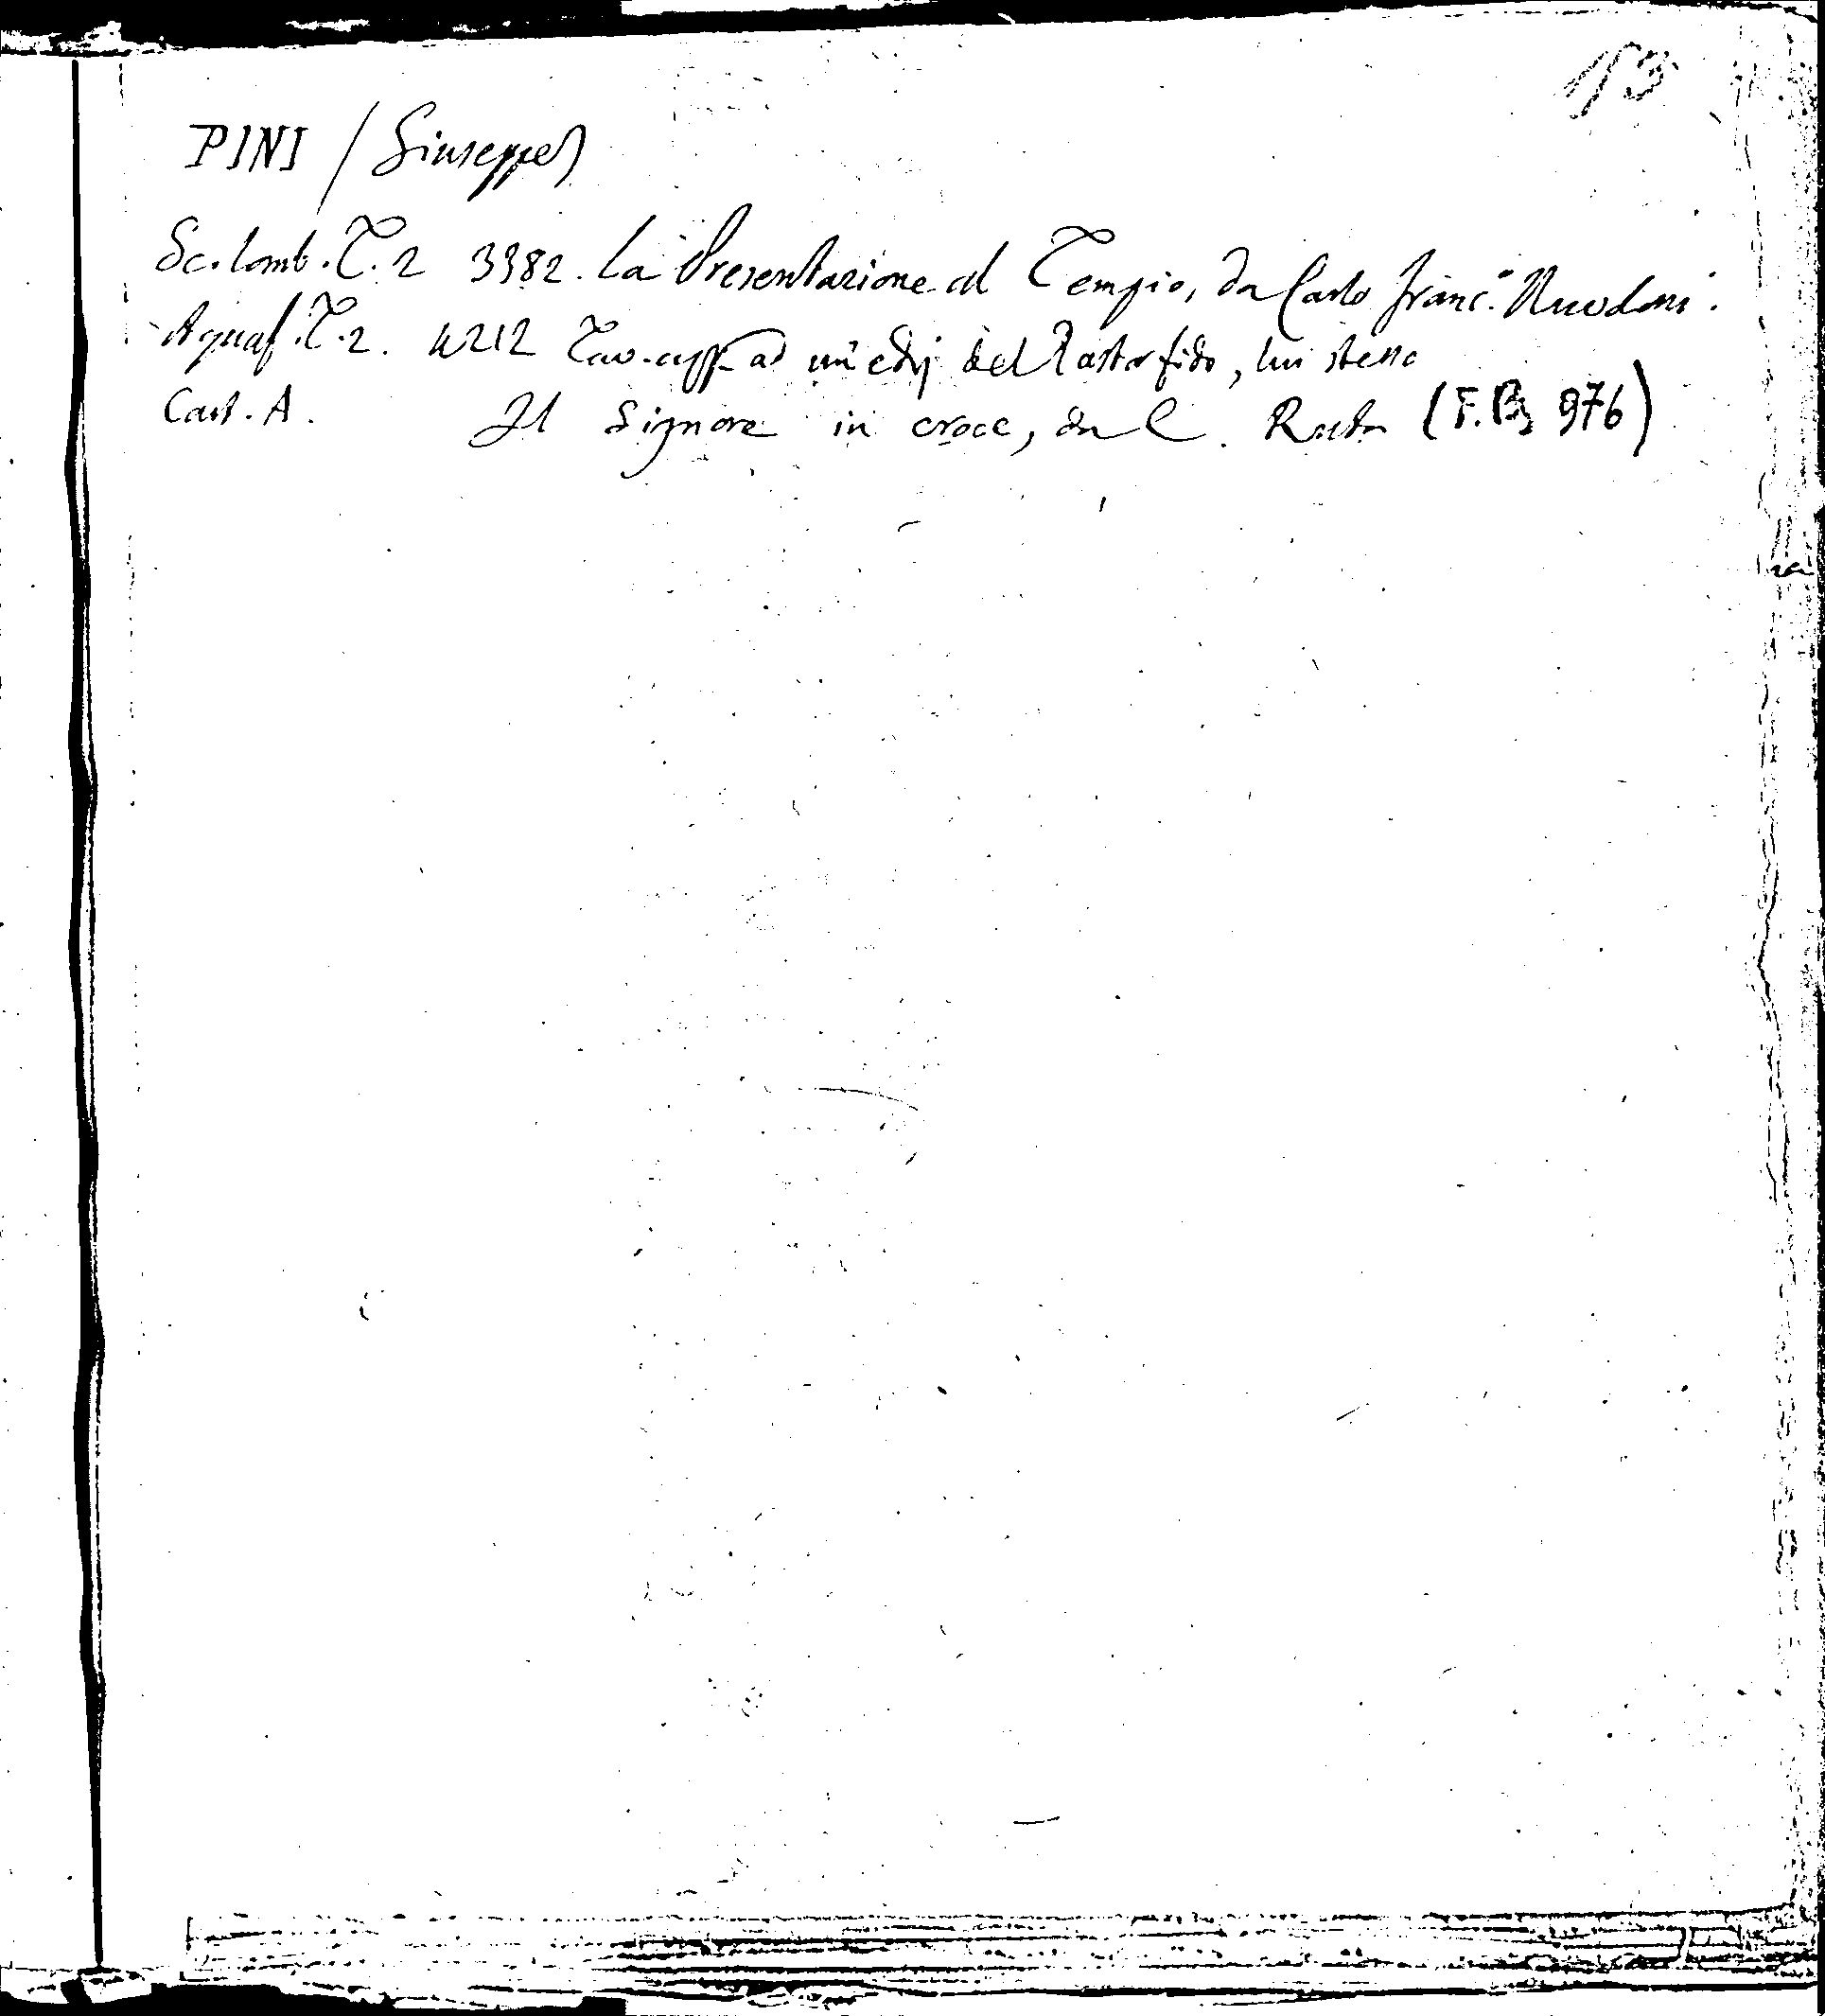 13
PINI / Giuseppe
Sc. lomb. T. 2 3382. La Presentazione al Tempio, da Carlo Franc.º Nuvoloni.
Aquaf. T. 2. 4212 Tav. app. ad un' ediz del Pastor fido, lui stesso
Cart. A. Il Signore in croce, da C. Ruta (F.B, 976)